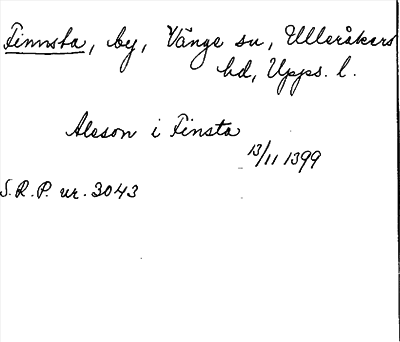 Finnsta, by, Vänge sn, Ulleråkers
hd, Upps. l.
Alsson i Finsta
13/11 1399
S.R.P. nr. 3043